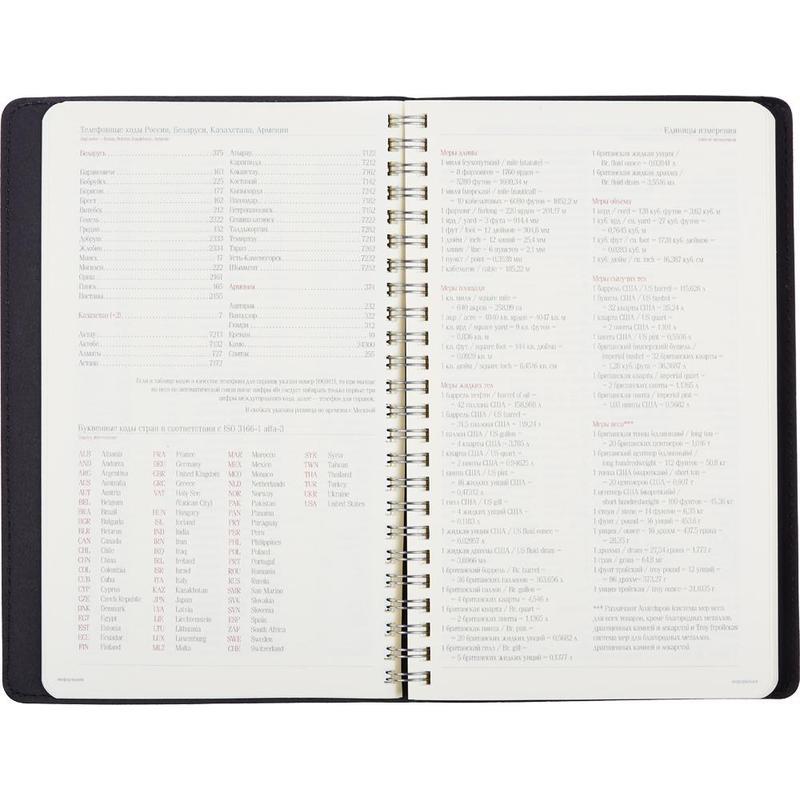 Телефонные коды России, Беларуси, Казахстана, Армении
Беларусь 375
Барановичи 163
Бобруйск 225
Борисов 177
Брест 162
Витебск 212
Гомель 2322
Гродно 152
Добруш 2333
Жлобин 2334
Минск 17
Могилев 222
Орша 2161
Пинск 165
Поставы 2155
Казахстан (+2) 7
Актау 7213
Актобе 7132
Алматы 727
Астана 7172
Атырау 7122
Караганда 7212
Кокшетау 7162
Костанай 7142
Кызылорда 7242
Павлодар 7182
Петропавловск 7152
Семипалатинск 7222
Талдыкорган 7282
Темиртау 7213
Тараз 7262
Усть-Каменогорск 7232
Шымкент 7252
Армения 374
Аштарак 232
Ванадзор 322
Гюмри 312
Ереван 10
Спитак 255
В скобках указана разница по времени с Москвой
Буквенные коды стран в соответствии с ISO 3166-1 alfa-3
ALB Albania
AND Andorra
ARG Argentina
AUS Australia
AUT Austria
BEL Belgium
BRA Brasil
BGR Bulgaria
BLR Belarus
CAN Canada
CHL Chile
CHN China
COL Colombia
CUB Cuba
CYP Cyprus
CZE Czech Republic
DNK Denmark
EGY Egypt
EST Estonia
ECU Ecuador
FIN Finland
FRA France
DEU Germany
GBR United Kingdom
GRC Greece
VAT Holy See
(Vatican City)
HUN Hungary
ISL Iceland
IND India
IRN Iran
IRQ Iraq
IRL Ireland
ISR Israel
ITA Italy
KAZ Kazakhstan
JPN Japan
LVA Latvia
LIE Liechtenstein
LTU Lithuania
LUX Luxemburg
MLT Malta
MAR Morocco
MEX Mexico
MCO Monaco
NLD Netherlands
NOR Norway
PAK Pakistan
PAN Panama
PRY Paraguay
PER Peru
PHL Philippines
POL Poland
PRT Portugal
ROU Romania
RUS Russia
SMR San Marino
SVK Slovakia
SVN Slovenia
ESP Spain
ZAF South Africa
SWE Sweden
CHE Switzerland
SYR Syria
TWN Taiwan
THA Thailand
TUR Turkey
UKR Ukraine
USA United States
информация
Единицы измерения
Меры длины
1 миля (сухопутная) / mile (statute) =
= 8 фарлонгов = 1760 ярдов =
= 5280 футов = 1609,34 м
1 миля (морская) / mile (nautical)
= 10 кабельтовых = 6080 футов = 1852,2 м
1 фарлонг / furlong = 220 ярдов = 201,17 м
1 ярд / yard = 3 фута = 914,4 мм
1 фут / foot = 12 дюймов = 304,8 мм
1 дюйм / inch = 12 линий = 25,4 мм
1 линия / line = 6 пунктов = 2,1 мм
1 пункт / point = 0,3528 мм
1 кабельтов / cable = 185,22 м
Меры площади
1 кв. миля / square mile =
= 640 акров = 258,99 га
1 акр / acre = 4840 кв. ярдов = 4047 кв. м
1 кв. ярд / square yard = 9 кв. футов =
= 0,836 кв. м
1 кв. фут / square foot = 144 кв. дюйма =
= 0,0929 кв. м
1 кв. дюйм / square inch = 6,4516 кв. см
Меры жидких тел
1 баррель нефти / barrel of oil =
= 42 галлона США = 158,988 л
1 баррель США / US barrel =
= 31,5 галлона США = 119,24 л
1 галлон США / US gallon =
= 4 кварты США = 3,785 л
1 кварта США / US quart =
= 2 пинты США = 0,94625 л
1 пинта США / US pint =
= 16 жидких унций США =
= 0,47312 л
1 гилл США / US gill =
= 4 жидкие унции США =
= 0,1183 л
1 жидкая унция США / US fluid ounce =
= 0,02957 л
1 жидкая драхма США / US fluid dram =
= 3,6966 мл
1 британский баррель / Br. barrel =
= 36 британских галлонов = 163,656 л
1 британский галлон / Br. gallon =
= 4 британских кварты = 4,546 л
1 британская кварта / Br. quart =
= 2 британских пинты = 1,1365 л
1 британская пинта / Br. pint =
= 20 британских жидких унций = 0,5682 л
1 британский гилл / Br. gill =
= 5 британских жидких унций = 0,1377 л
1 британская жидкая унция /
Br. fluid ounce = 0,02841 л
1 британская жидкая драхма /
Br. fluid dram = 3,5516 мл
Меры объема
1 корд / cord = 128 куб. футов = 3,62 куб. м
1 куб. ярд / cu. yard = 27 куб. футов =
= 0,7645 куб. м
1 куб. фут / cu. foot = 1728 куб. дюймов =
= 0,0283 куб. м
1 куб. дюйм / cu. inch = 16,387 куб. см
Меры сыпучих тел
1 баррель США / US barrel = 115,628 л
1 бушель США / US bushel =
= 32 кварты США = 35,24 л
1 кварта США / US quart =
= 2 пинты США = 1,101 л
1 пинта США / US pint = 0,5506 л
1 британский (имперский) бушель /
imperial bushel = 32 британских кварты =
= 1,28 куб. фута = 36,3687 л
1 британская кварта / imperial quart =
= 2 британских пинты = 1,1365 л
1 британская пинта / imperial pint =
= 1,03 пинты США = 0,5682 л
Меры веса***
1 британская тонна (длинная) / long ton =
= 20 британских центнеров = 1016 кг
1 британский центнер (длинный) /
long hundredweight = 112 фунтов = 50,8 кг
1 тонна США (короткая) / short ton =
= 20 центнеров США = 0,907 т
1 центнер США (короткий) /
short hundredweight = 100 фунтов = 45,36 кг
1 стоун / stone = 14 фунтов = 6,35 кг
1 фунт / pound = 16 унций = 453,6 г
1 унция / ounce = 16 драхм = 437,5 грана =
= 28,35 г
1 драхма / dram = 27,34 грана = 1,772 г
1 гран / grain = 64,8 мг
1 фунт тройский / troy pound = 12 унций =
= 96 драхм = 373,27 г
1 унция тройская / troy ounce = 31,1035 г
*** Различают Avoirdupois (система мер веса
для всех товаров, кроме благородных металлов,
драгоценных камней и лекарств) и Troy (тройская
система мер для благородных металлов,
драгоценных камней и лекарств).
информация